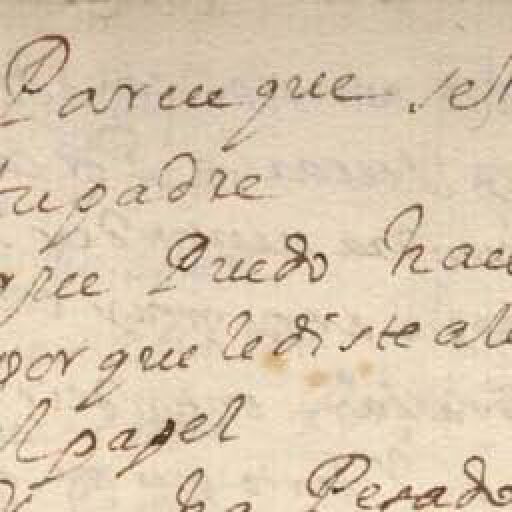 Parece que se
tu padre
que Puedo hace
por que le diste al
el papel
ha Pesado